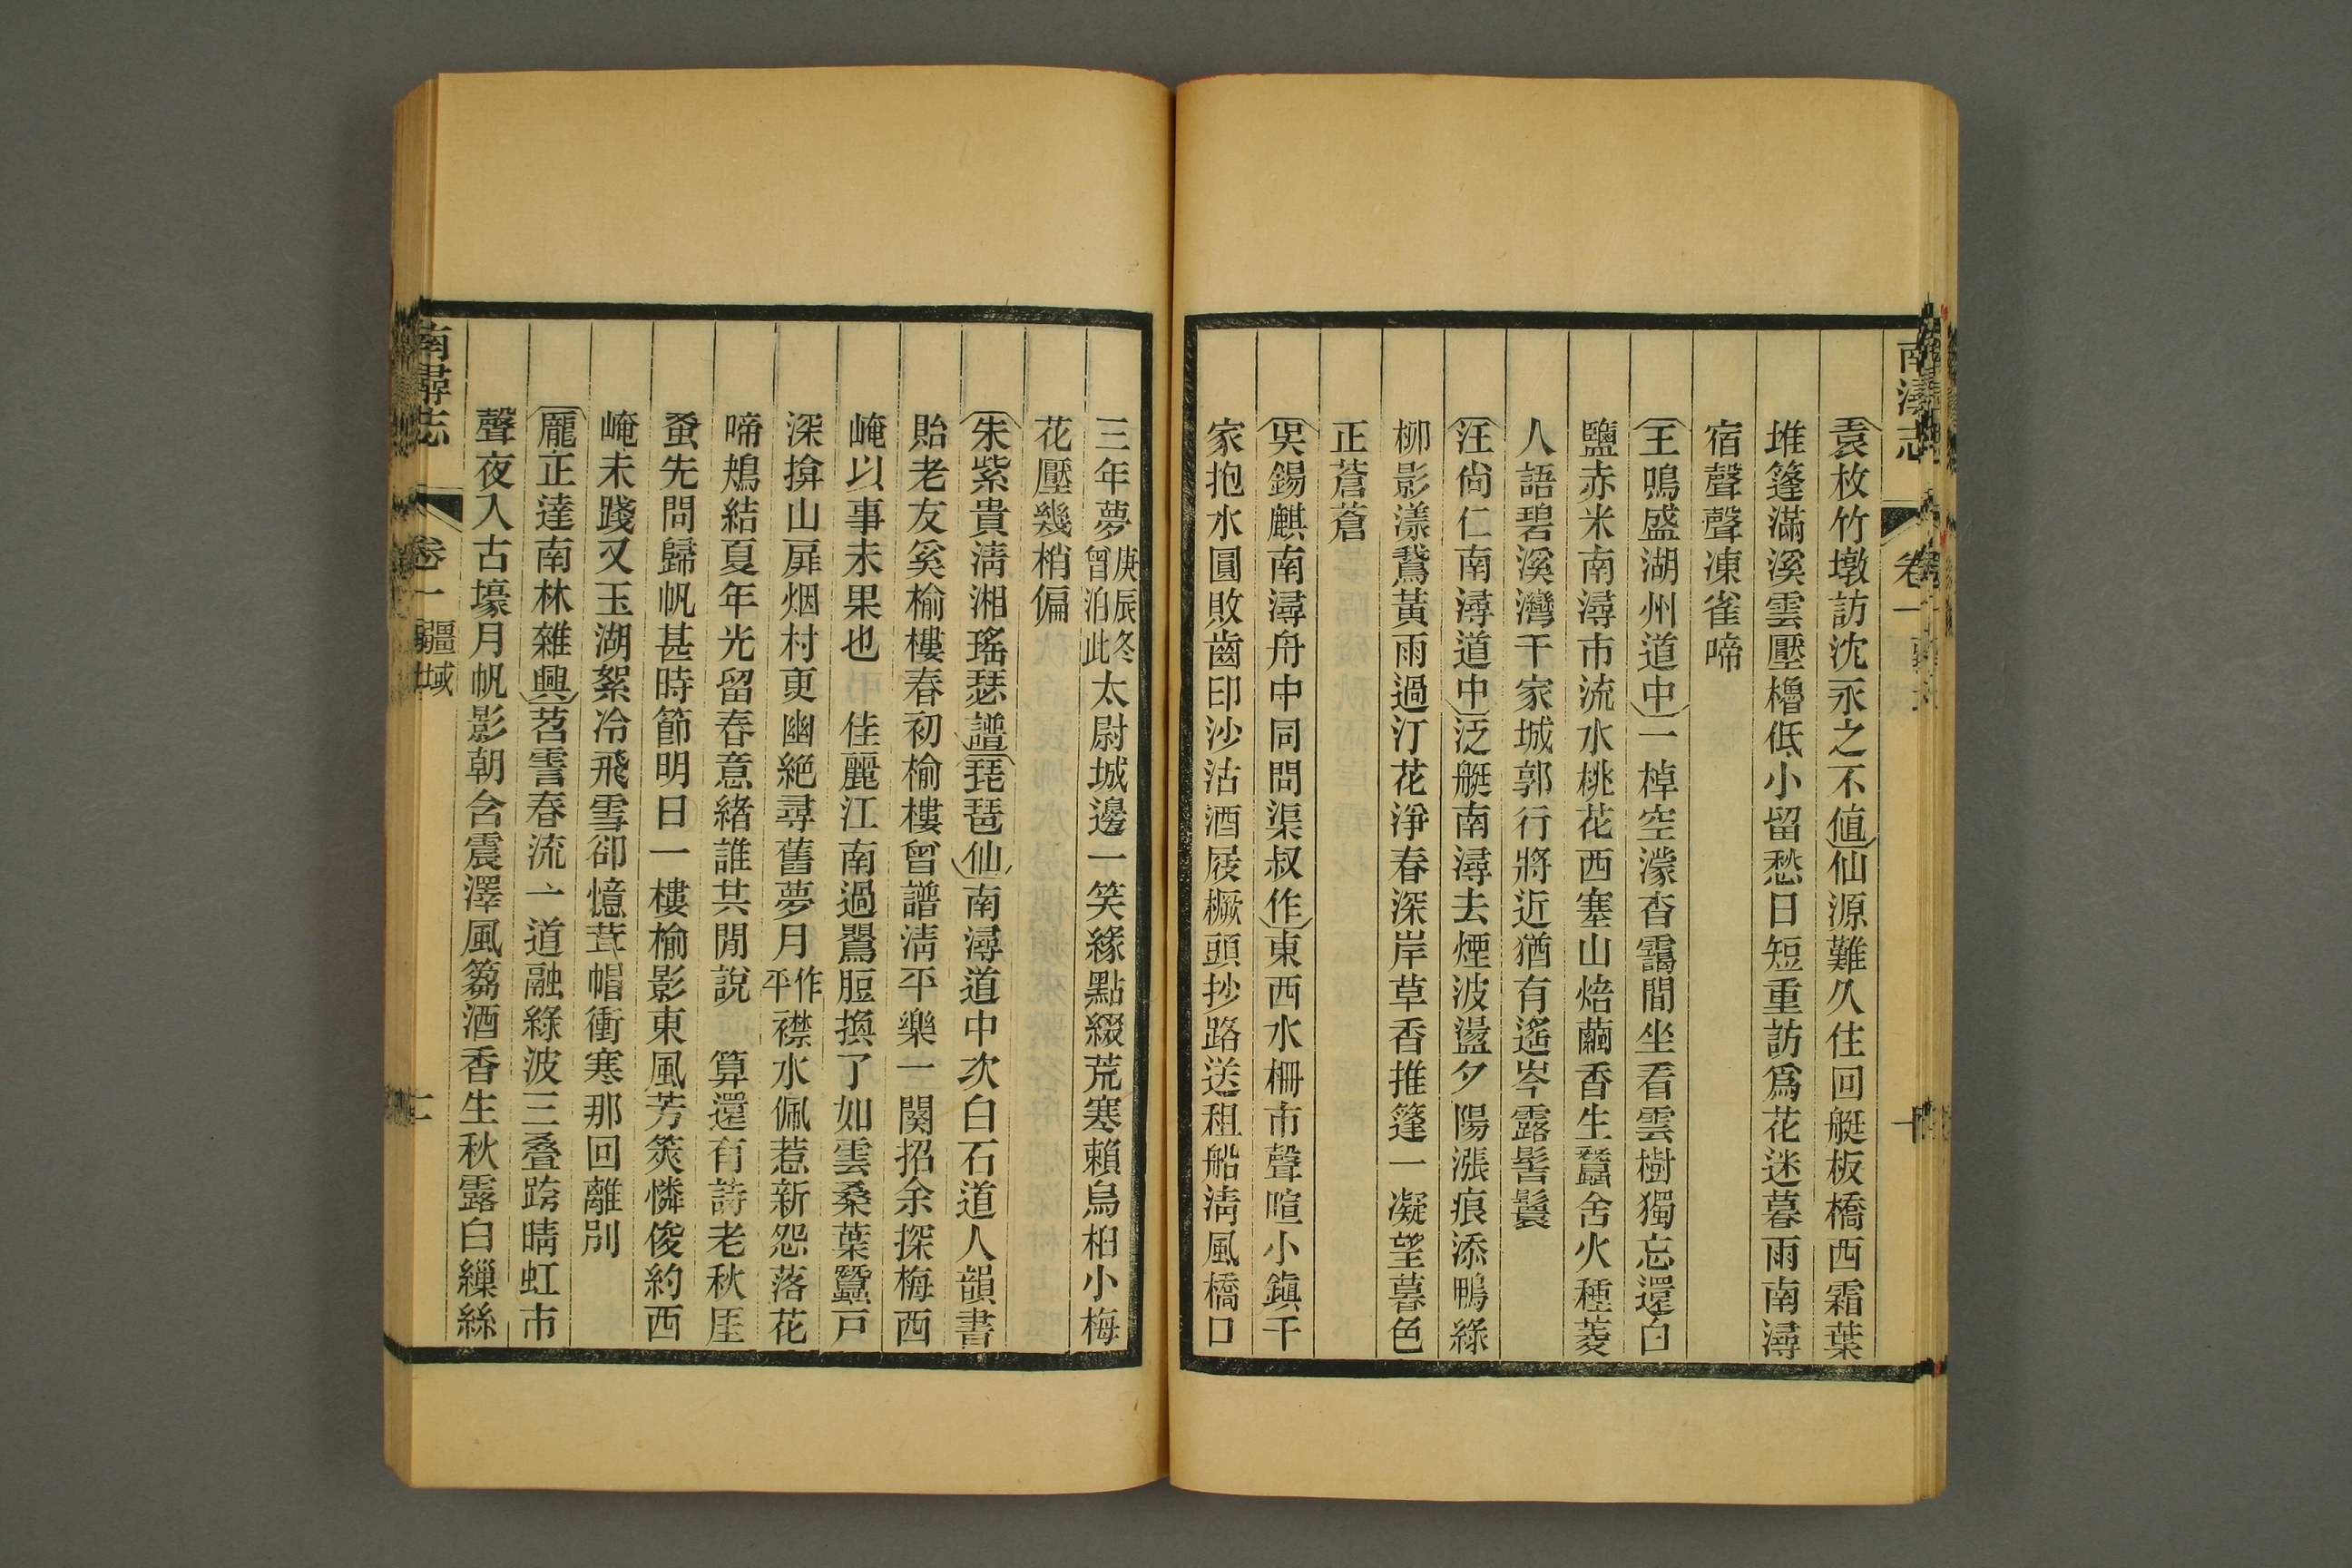 南潯志
卷一
袁枚竹墩訪沈永之不值仙源難久住回艇板橋西霜葉
堆篷滿溪雲壓櫓低小留愁日短重訪爲花迷暮雨南潯
宿聲聲凍雀啼
王鳴盛湖州道中一棹空濛杳靄間坐看雲樹獨忘還白
鹽赤米南潯市流水桃花西塞山焙繭香生蠶舍火種菱
人語碧溪灣千家城郭行將近猶有遙岑露髻鬟
汪尙仁南潯道中泛艇南潯去煙波盪夕陽漲痕添鴨綠
柳影漾鵞黃雨過汀花淨春深岸草香推篷一凝望暮色
正蒼蒼
吳錫麒南潯舟中同問渠叔作東西水柵市聲喧小鎭千
家抱水圓敗齒印沙沽酒屐橛頭抄路送租船淸風橋口
三年夢庚辰冬曾泊此太尉城邊一笑緣點綴荒寒賴烏桕小梅
花壓幾梢偏
朱紫貴淸湘瑤瑟譜琵琶仙南潯道中次白石道人韻書
貽老友奚榆樓春初榆樓曾譜淸平樂一闋招余探梅西
崦以事未果也 佳麗江南過鷖脰換了如雲桑葉蠶戸
深揜山扉烟村更幽絕尋舊夢月作平襟水佩惹新怨落花
啼鴂結夏年光留春意緒誰共閒說 算還有詩老秋厓
蚤先問歸帆甚時節明日一樓榆影東風芳筴憐俊約西
崦未踐又玉湖絮冷飛雪卻憶茸帽衝寒那回離別
龐正達南林雜興苕霅春流一道融綠波三叠跨晴虹市
聲夜入古壕月帆影朝含震澤風篘酒香生秋露白繅絲
南潯志
卷一
疆域